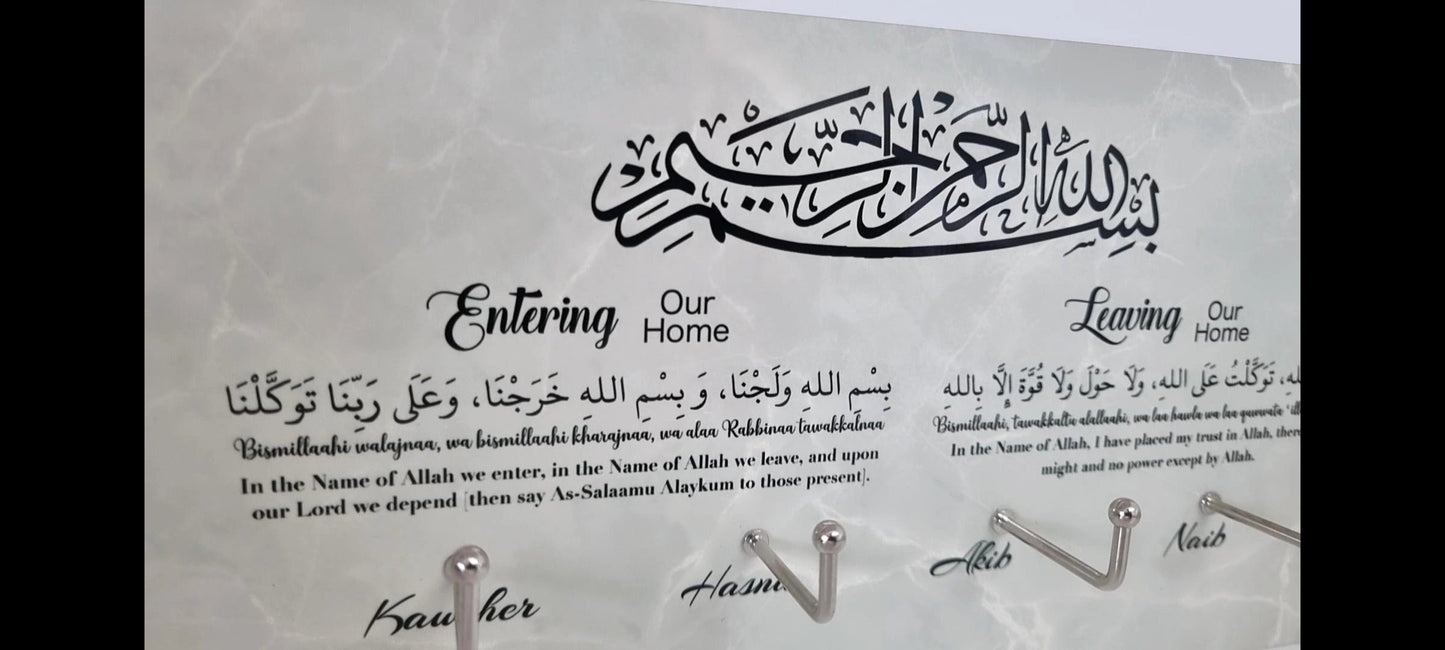 بسم الله الرحمن الرحيم
Entering Our Home
بِسْمِ اللهِ وَلَجْنَا، وَ بِسْمِ اللهِ خَرَجْنَا، وَعَلَى رَبِّنَا تَوَكَّلْنَا
Bismillaahi walajnaa, wa bismillaahi kharajnaa, wa alaa Rabbinaa tawakkalnaa
In the Name of Allah we enter, in the Name of Allah we leave, and upon
our Lord we depend [then say As-Salaamu Alaykum to those present].
Leaving Our Home
تَوَكَّلْتُ عَلَى اللهِ، وَلَا حَوْلَ وَلَا قُوَّةَ إِلَّا بِاللهِ
Bismillaahi, tawakkaltu alallaahi, wa laa hawla wa laa quwwata
In the Name of Allah, I have placed my trust in Allah,
might and no power except by Allah.
Akib
Naib